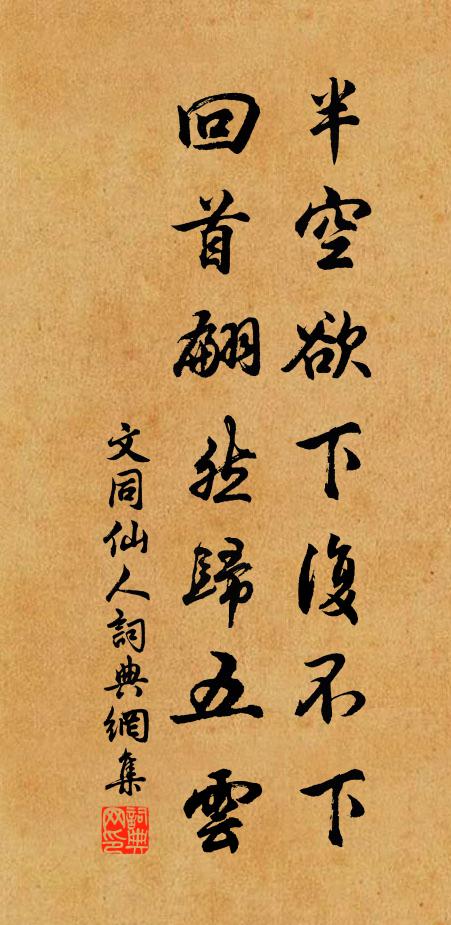 半空欲下復不下
回首翩然歸五雲
文同仙人詞典網集
詞典网印